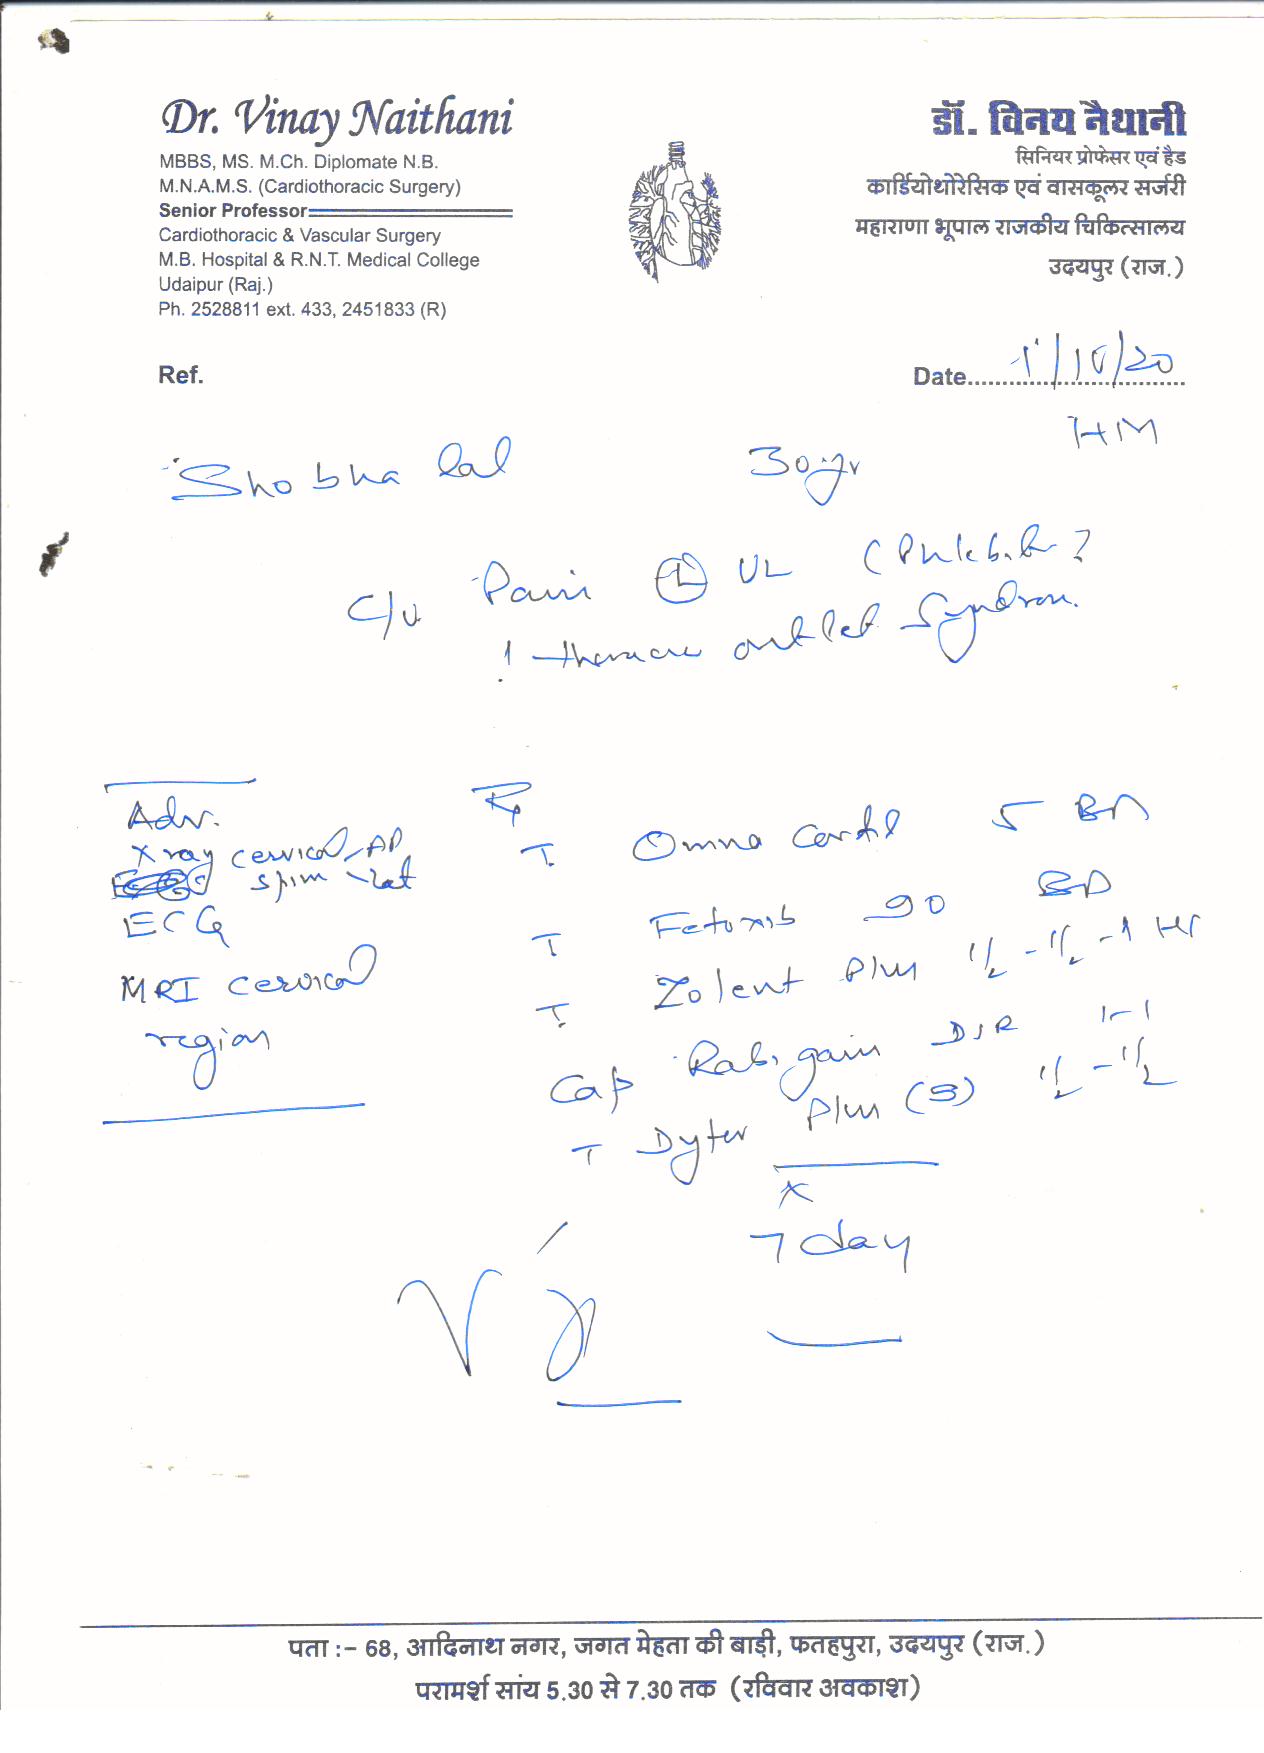 Dr. Vinay Naithani
MBBS, MS. M.Ch. Diplomate N.B.
M.N.A.M.S. (Cardiothoracic Surgery)
Senior Professor
Cardiothoracic & Vascular Surgery
M.B. Hospital & R.N.T. Medical College
Udaipur (Raj.)
Ph. 2528811 ext. 433, 2451833 (R)
डॉ. विनय नैथानी
सिनियर प्रोफेसर एवं हैड
कार्डियोथोरेसिक एवं वासकूलर सर्जरी
महाराणा भूपाल राजकीय चिकित्सालय
उदयपुर (राज.)
Ref.
Date /10/20
HM
Shobha lal 30 yr
Pain (L) UL
outlet Syndrom.
Adv.
X ray cervical AP
spine lat
ECG
MRI cervical
region
Rx
T. Omna Cortil 5 BD
T 90 BD
T. Zolent Plus 1/2 - 1/2 - 1
Cap Rabigain DSR 1-1
T Dytor Plus (5) 1/2 - 1/2
x
7 day
पता :– 68, आदिनाथ नगर, जगत मेहता की बाड़ी, फतहपुरा, उदयपुर (राज.)
परामर्श सांय 5.30 से 7.30 तक (रविवार अवकाश)